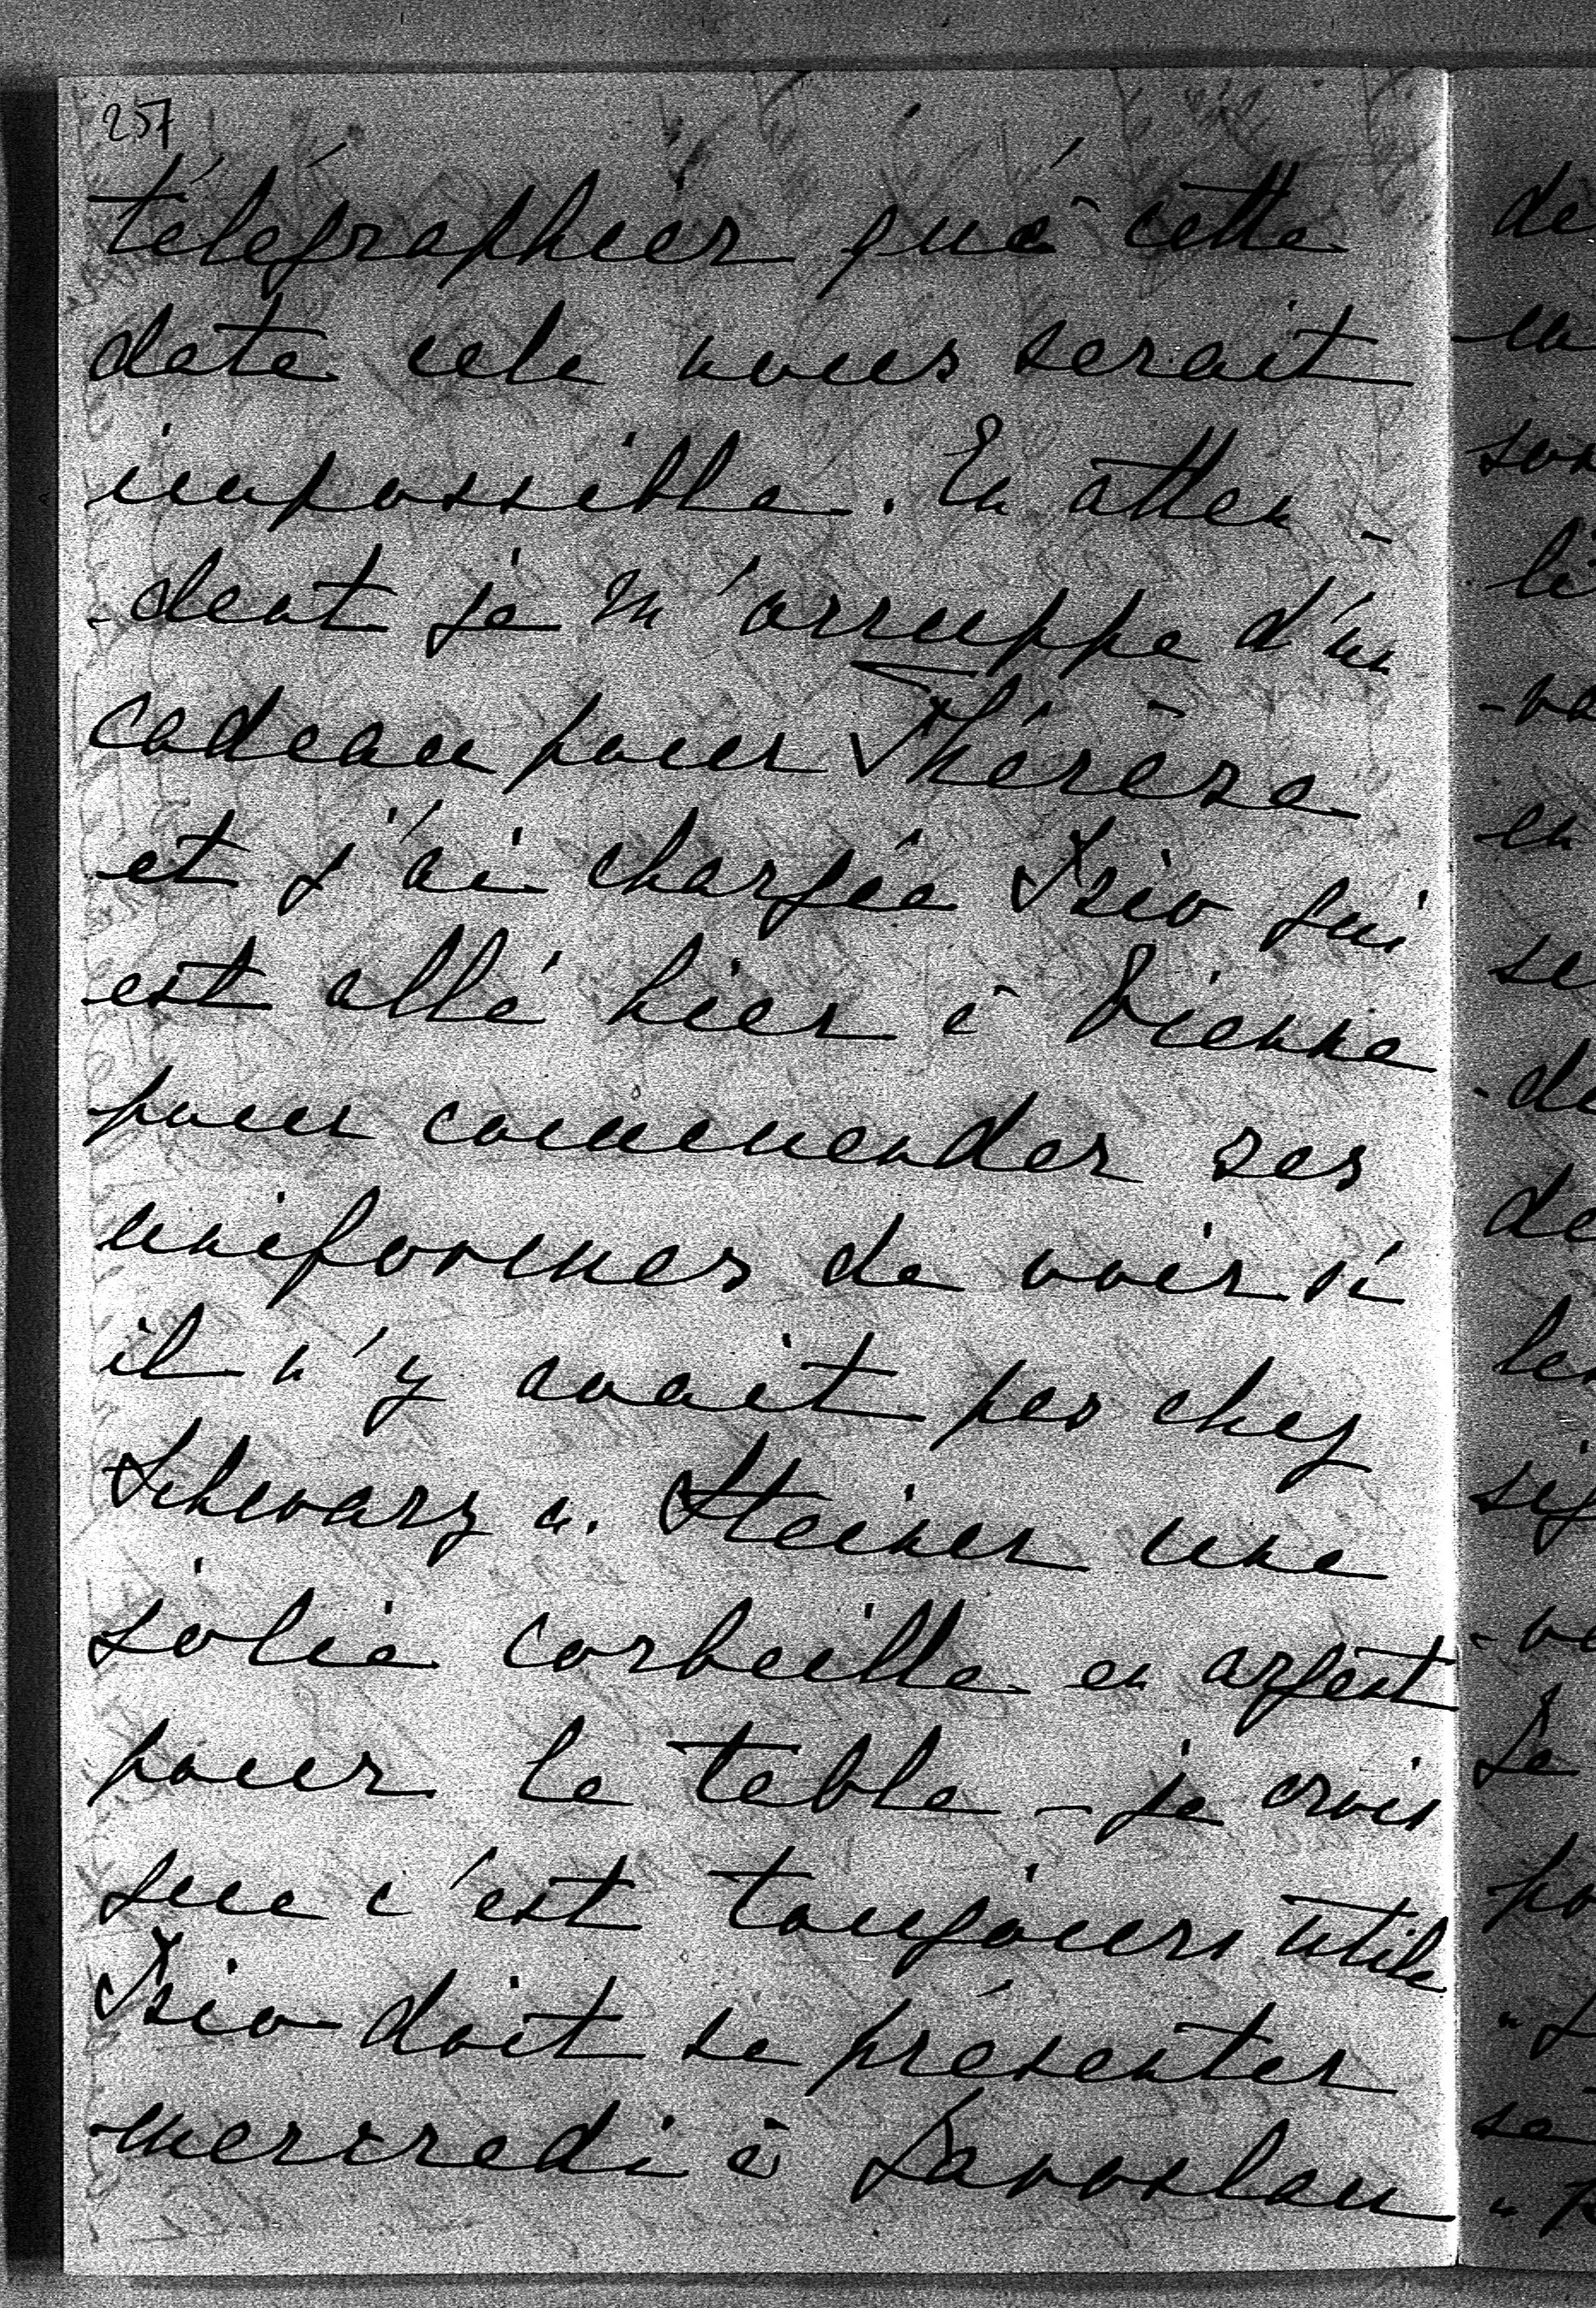 257
télégraphier qu'à cette
date cela nous serait
impossible. En atten-
-dant je m'occuppe d'un
cadeau pour Thérèse
et j'ai chargée Izio qui
est allé hier à Vienne
pour commander ses
uniformes de voir si
il n'y avait pas chez
Schwarz u. Steiner une
jolie corbeille en argent
pour la table - je crois
que c'est toujours utile
Izio doit se présenter
mercredi à Jaroslau